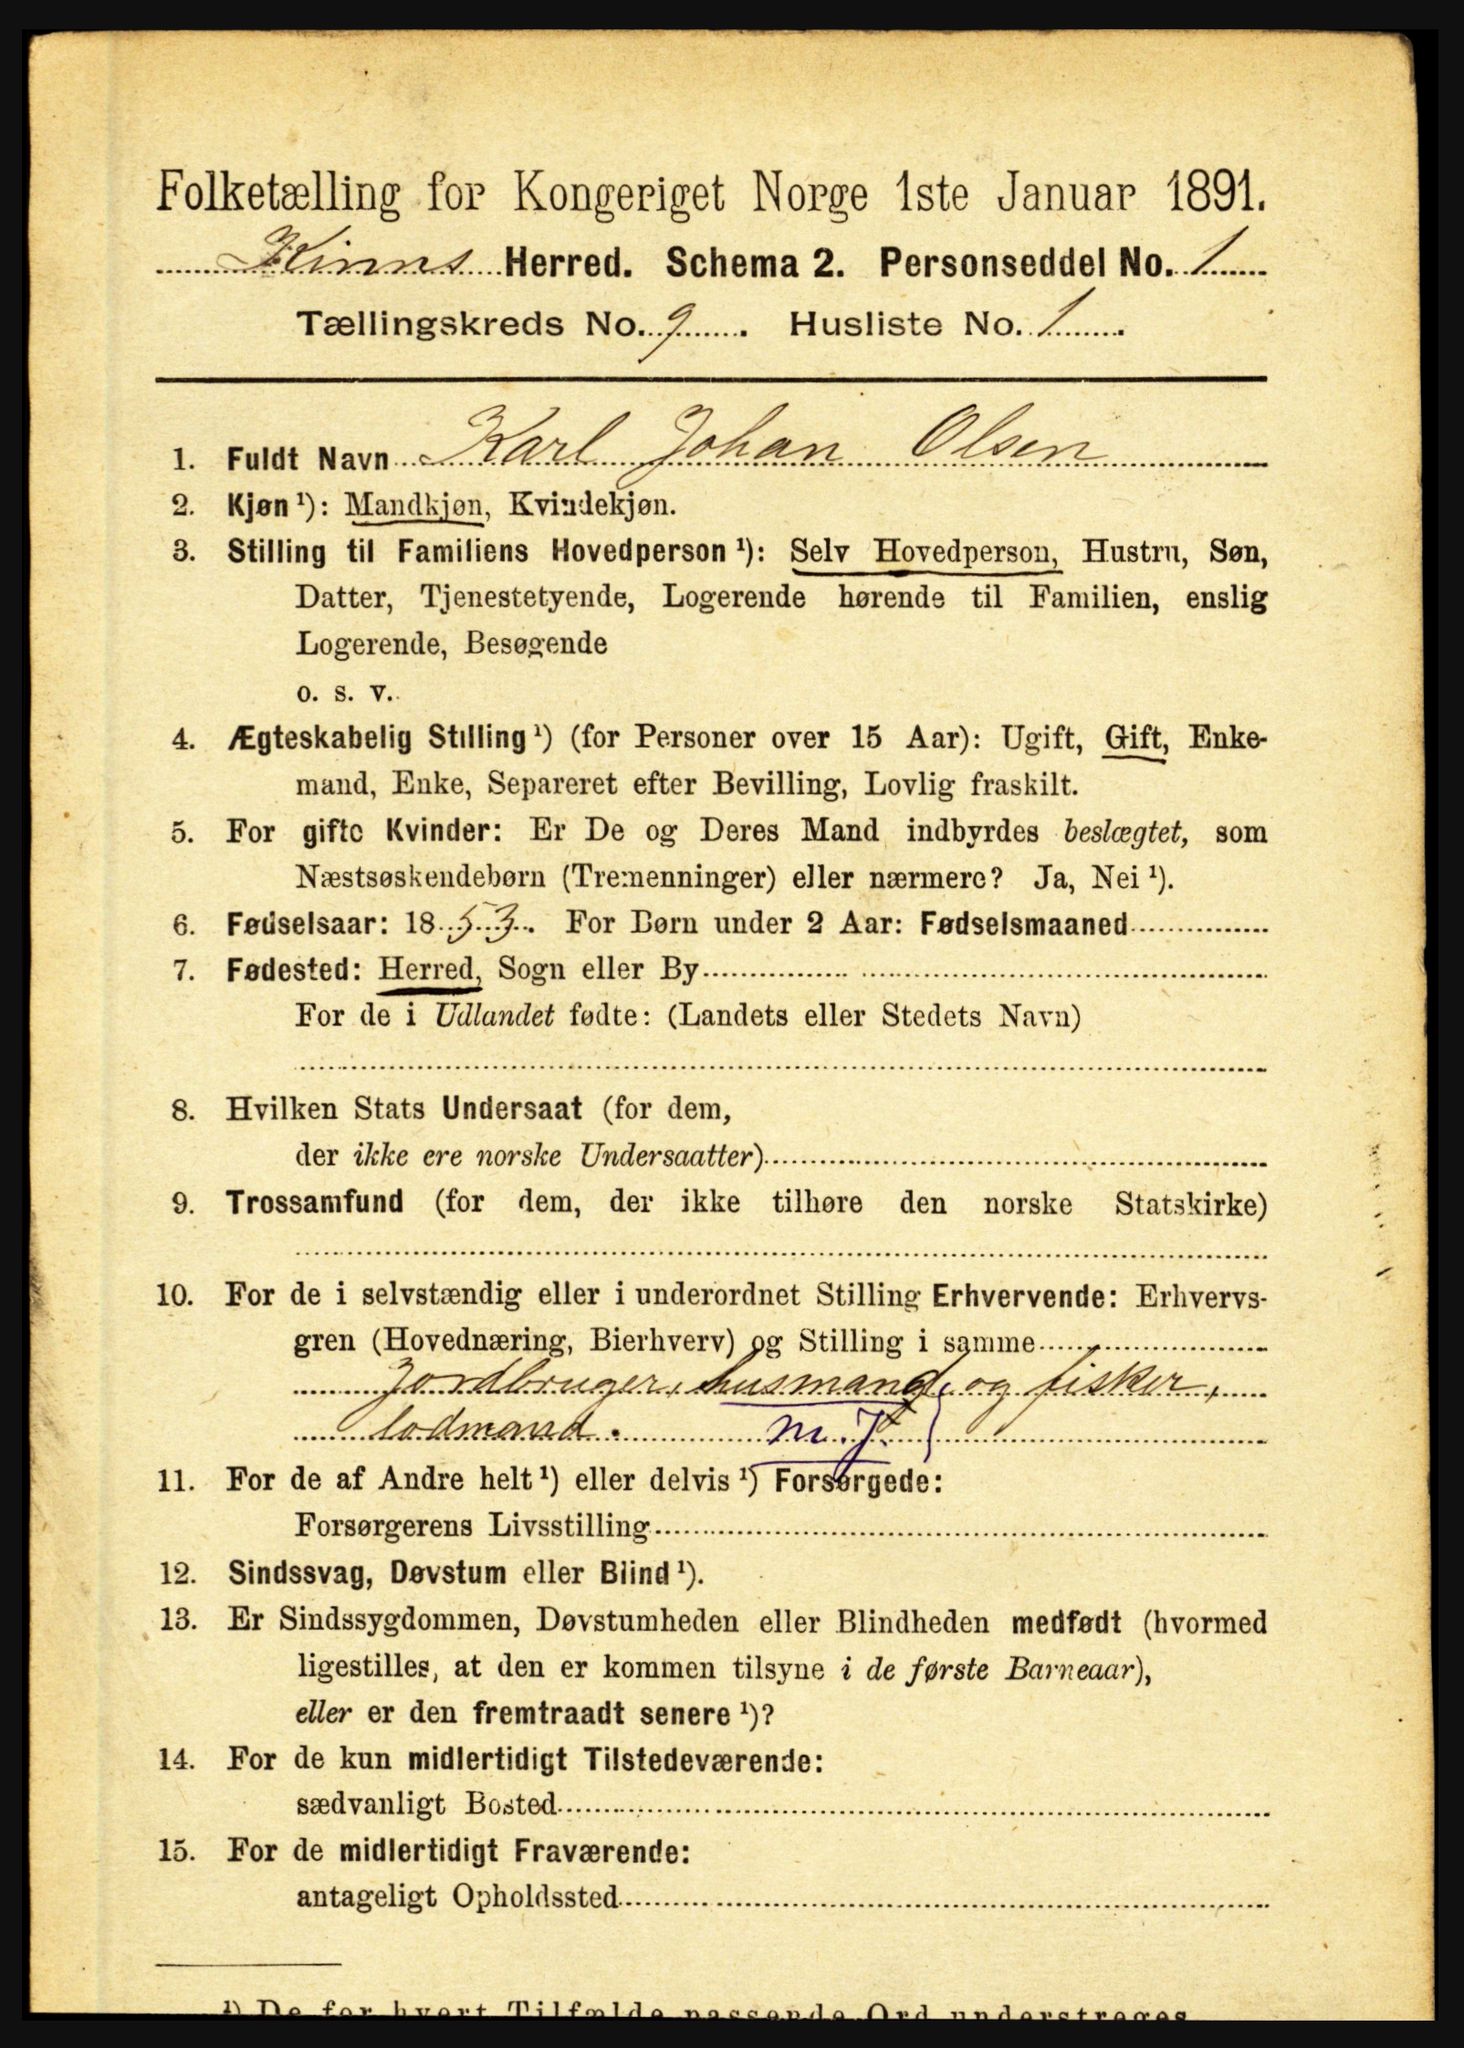 Folketælling for Kongeriget Norge 1ste Januar 1891.
Kinns Herred. Schema 2. Personseddel No. 1
Tællingskreds No. 9. Husliste No. 1.
1. Fuldt Navn Karl Johan Olsen
2. Kjøn ¹): Mandkjøn, Kvindekjøn.
3. Stilling til Familiens Hovedperson ¹): Selv Hovedperson, Hustru, Søn,
Datter, Tjenestetyende, Logerende hørende til Familien, enslig
Logerende, Besøgende
o. s. v.
4. Ægteskabelig Stilling ¹) (for Personer over 15 Aar): Ugift, Gift, Enke-
mand, Enke, Separeret efter Bevilling, Lovlig fraskilt.
5. For gifte Kvinder: Er De og Deres Mand indbyrdes beslægtet, som
Næstsøskendebørn (Tremenninger) eller nærmere? Ja, Nei ¹).
6. Fødselsaar: 1853. For Børn under 2 Aar: Fødselsmaaned
7. Fødested: Herred, Sogn eller By
For de i Udlandet fødte: (Landets eller Stedets Navn)
8. Hvilken Stats Undersaat (for dem,
der ikke ere norske Undersaatter)
9. Trossamfund (for dem, der ikke tilhøre den norske Statskirke)
10. For de i selvstændig eller i underordnet Stilling Erhvervende: Erhvervs-
gren (Hovednæring, Bierhverv) og Stilling i samme
Jordbruger, husmand, og fisker,
lodmand. m. J.
11. For de af Andre helt ¹) eller delvis ¹) Forsørgede:
Forsørgerens Livsstilling
12. Sindssvag, Døvstum eller Blind ¹).
13. Er Sindssygdommen, Døvstumheden eller Blindheden medfødt (hvormed
ligestilles, at den er kommen tilsyne i de første Barneaar),
eller er den fremtraadt senere ¹)?
14. For de kun midlertidigt Tilstedeværende:
sædvanligt Bosted
15. For de midlertidigt Fraværende:
antageligt Opholdssted
¹) De for hvert Tilfælde passende Ord understreges